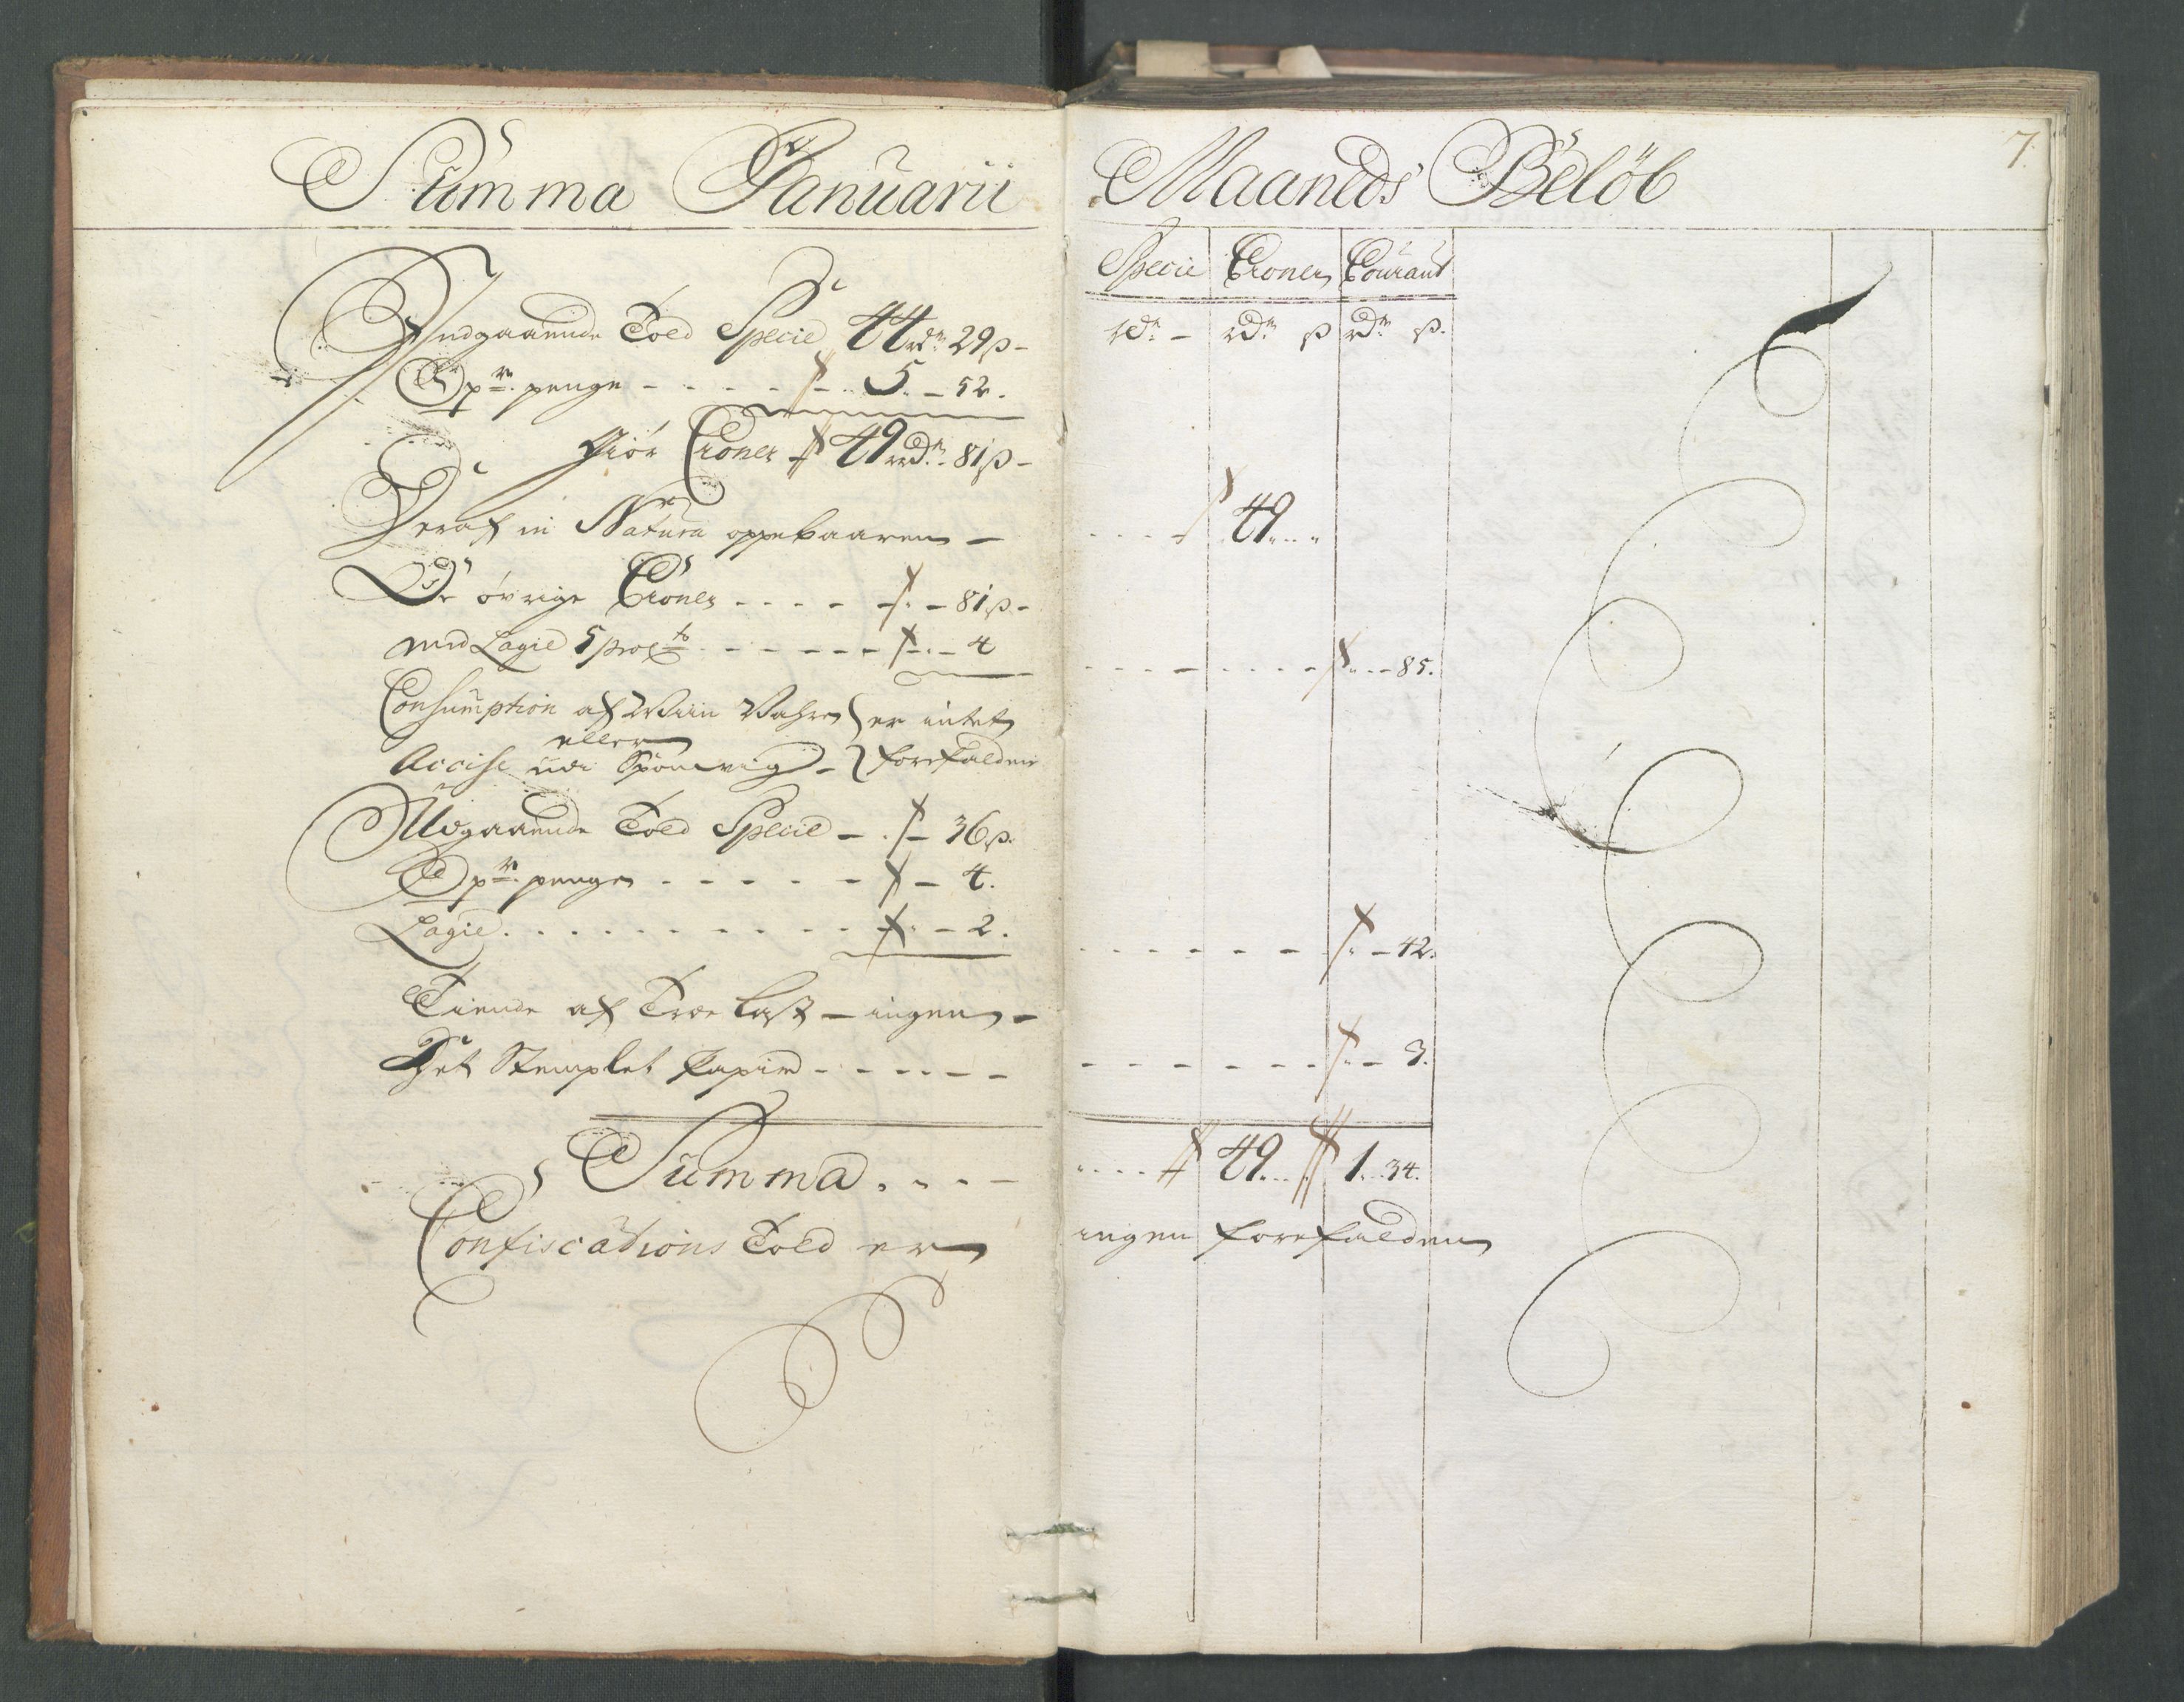 Summa Januarii Maaneds Beløb
7.
Specie Croner Courant
rdr – rdr ß rdr ß.
Indgaaende Told Specie 44 rdr 29 ß –
Op pr penge – – – – 5. – 52.
Giør Croner 49 rdr 81 ß –
Deraf in Natura oppebaaren – – – – 49. . .
De øvrige Croner . . . . – 81 ß –
med Lagie 5 proCto . – – – – – – 4 – – – – – – 85.
Consumption af Wiin Vahre } er intet
eller
Accise udi Spone vig – } forefalden
Udgaaende Told Specie – . – 36 ß.
pr penge . – – – – – – 4.
Lagie . . . . . . . . . . – 2. – – – – – – 42.
Tiende af Træ last – ingen –
Det Stemplet Papir – – – – – – – – – – – – – 3.
Summa . . . – . . . . 49. . . 1. . 34.
Confiscations Told er ingen forefalden